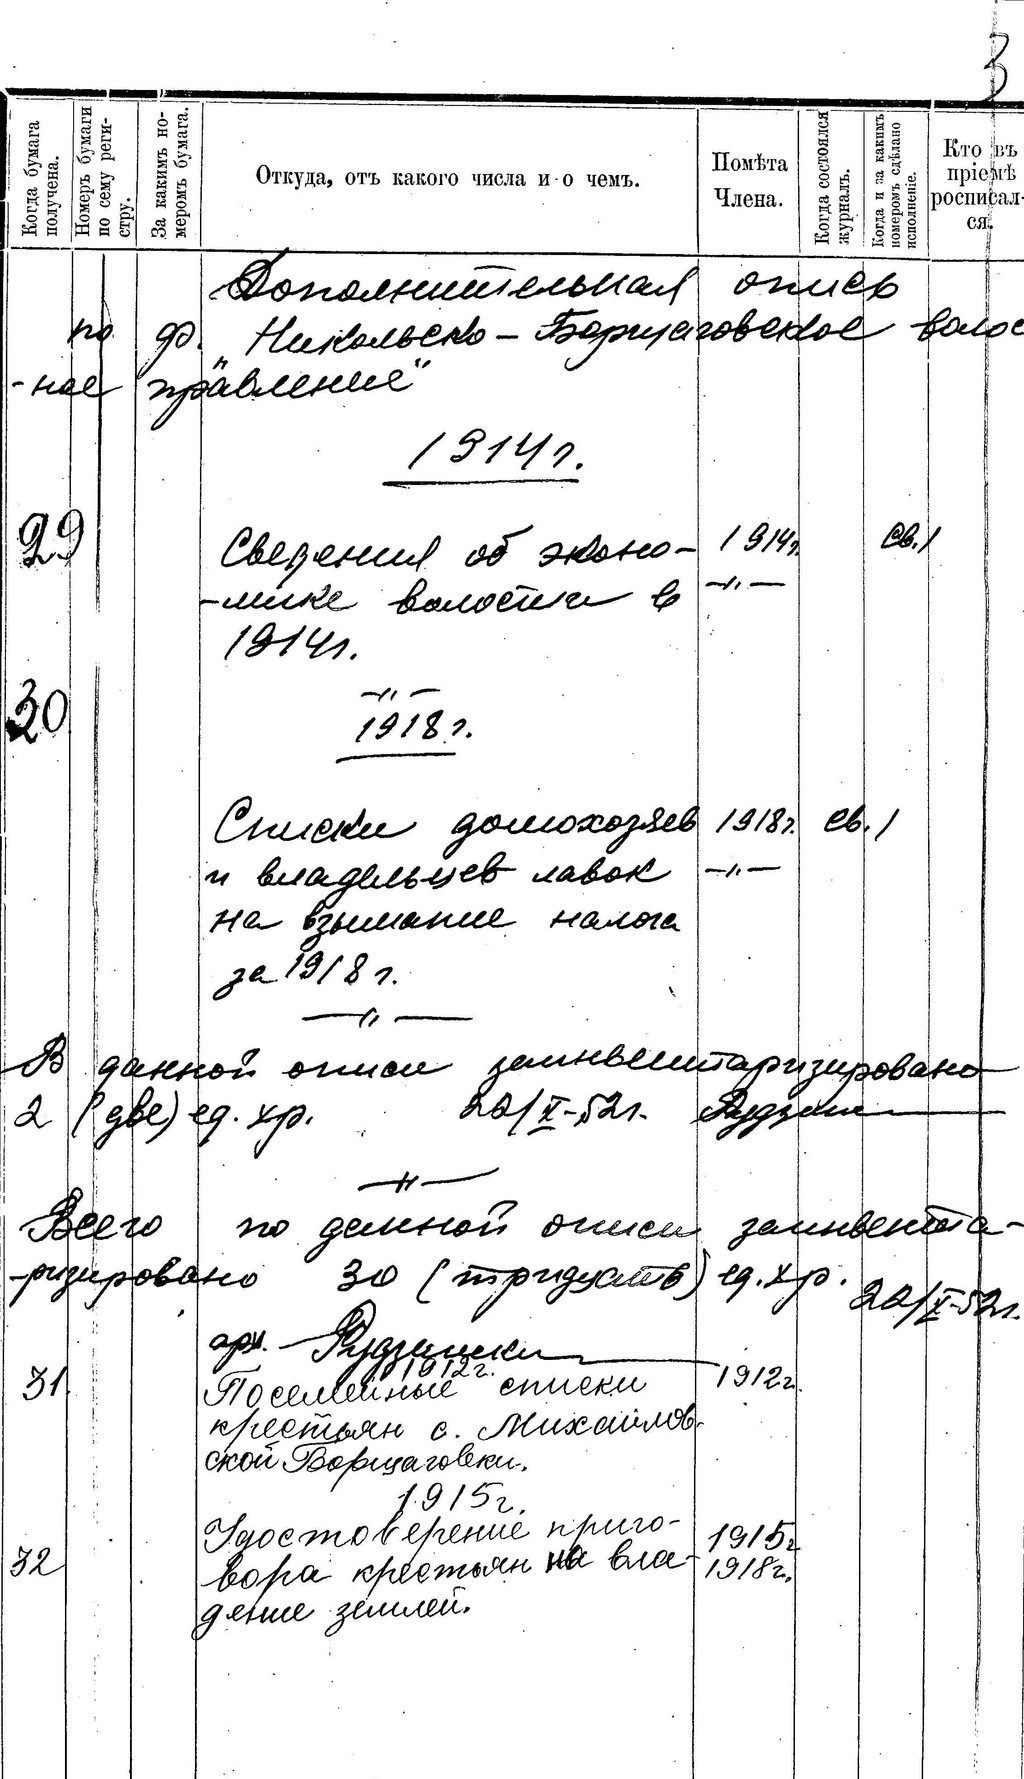 3
Когда бумага получена.
Номеръ бумаги по сему реги-стру.
За какимъ но-меромъ бумага.
Откуда, отъ какого числа и о чемъ.
Помѣта Члена.
Когда состоялся журналъ.
Когда и за какимъ номеромъ сдѣлано исполненіе.
Кто въ пріемѣ росписал-ся.
Дополнительная опись
по ф. "Никольско-Борщаговское волост
-ное правление"
1914 г.
29 Сведения об эконо- 1914г. св. 1
-мике волости в —"—
1914г.
—"—
30
1918 г.
Списки домохозяев 1918г. св. 1
и владельцев лавок —"—
на взымание налога
за 1918 г.
—"—
В данной описи заинвентаризировано
2 (две) ед. хр. 20/X-52г.
—"—
Всего по данной описи заинвента-
-ризировано 30 (тридцать) ед. хр. 20/X-52г.
арх.
1912г.
31 Посемейные списки 1912г.
крестьян с. Михайлов-
ской Борщаговки.
1915г.
Удостоверение приго- 1915г
32 вора крестьян на вла- 1918г.
дение землей.